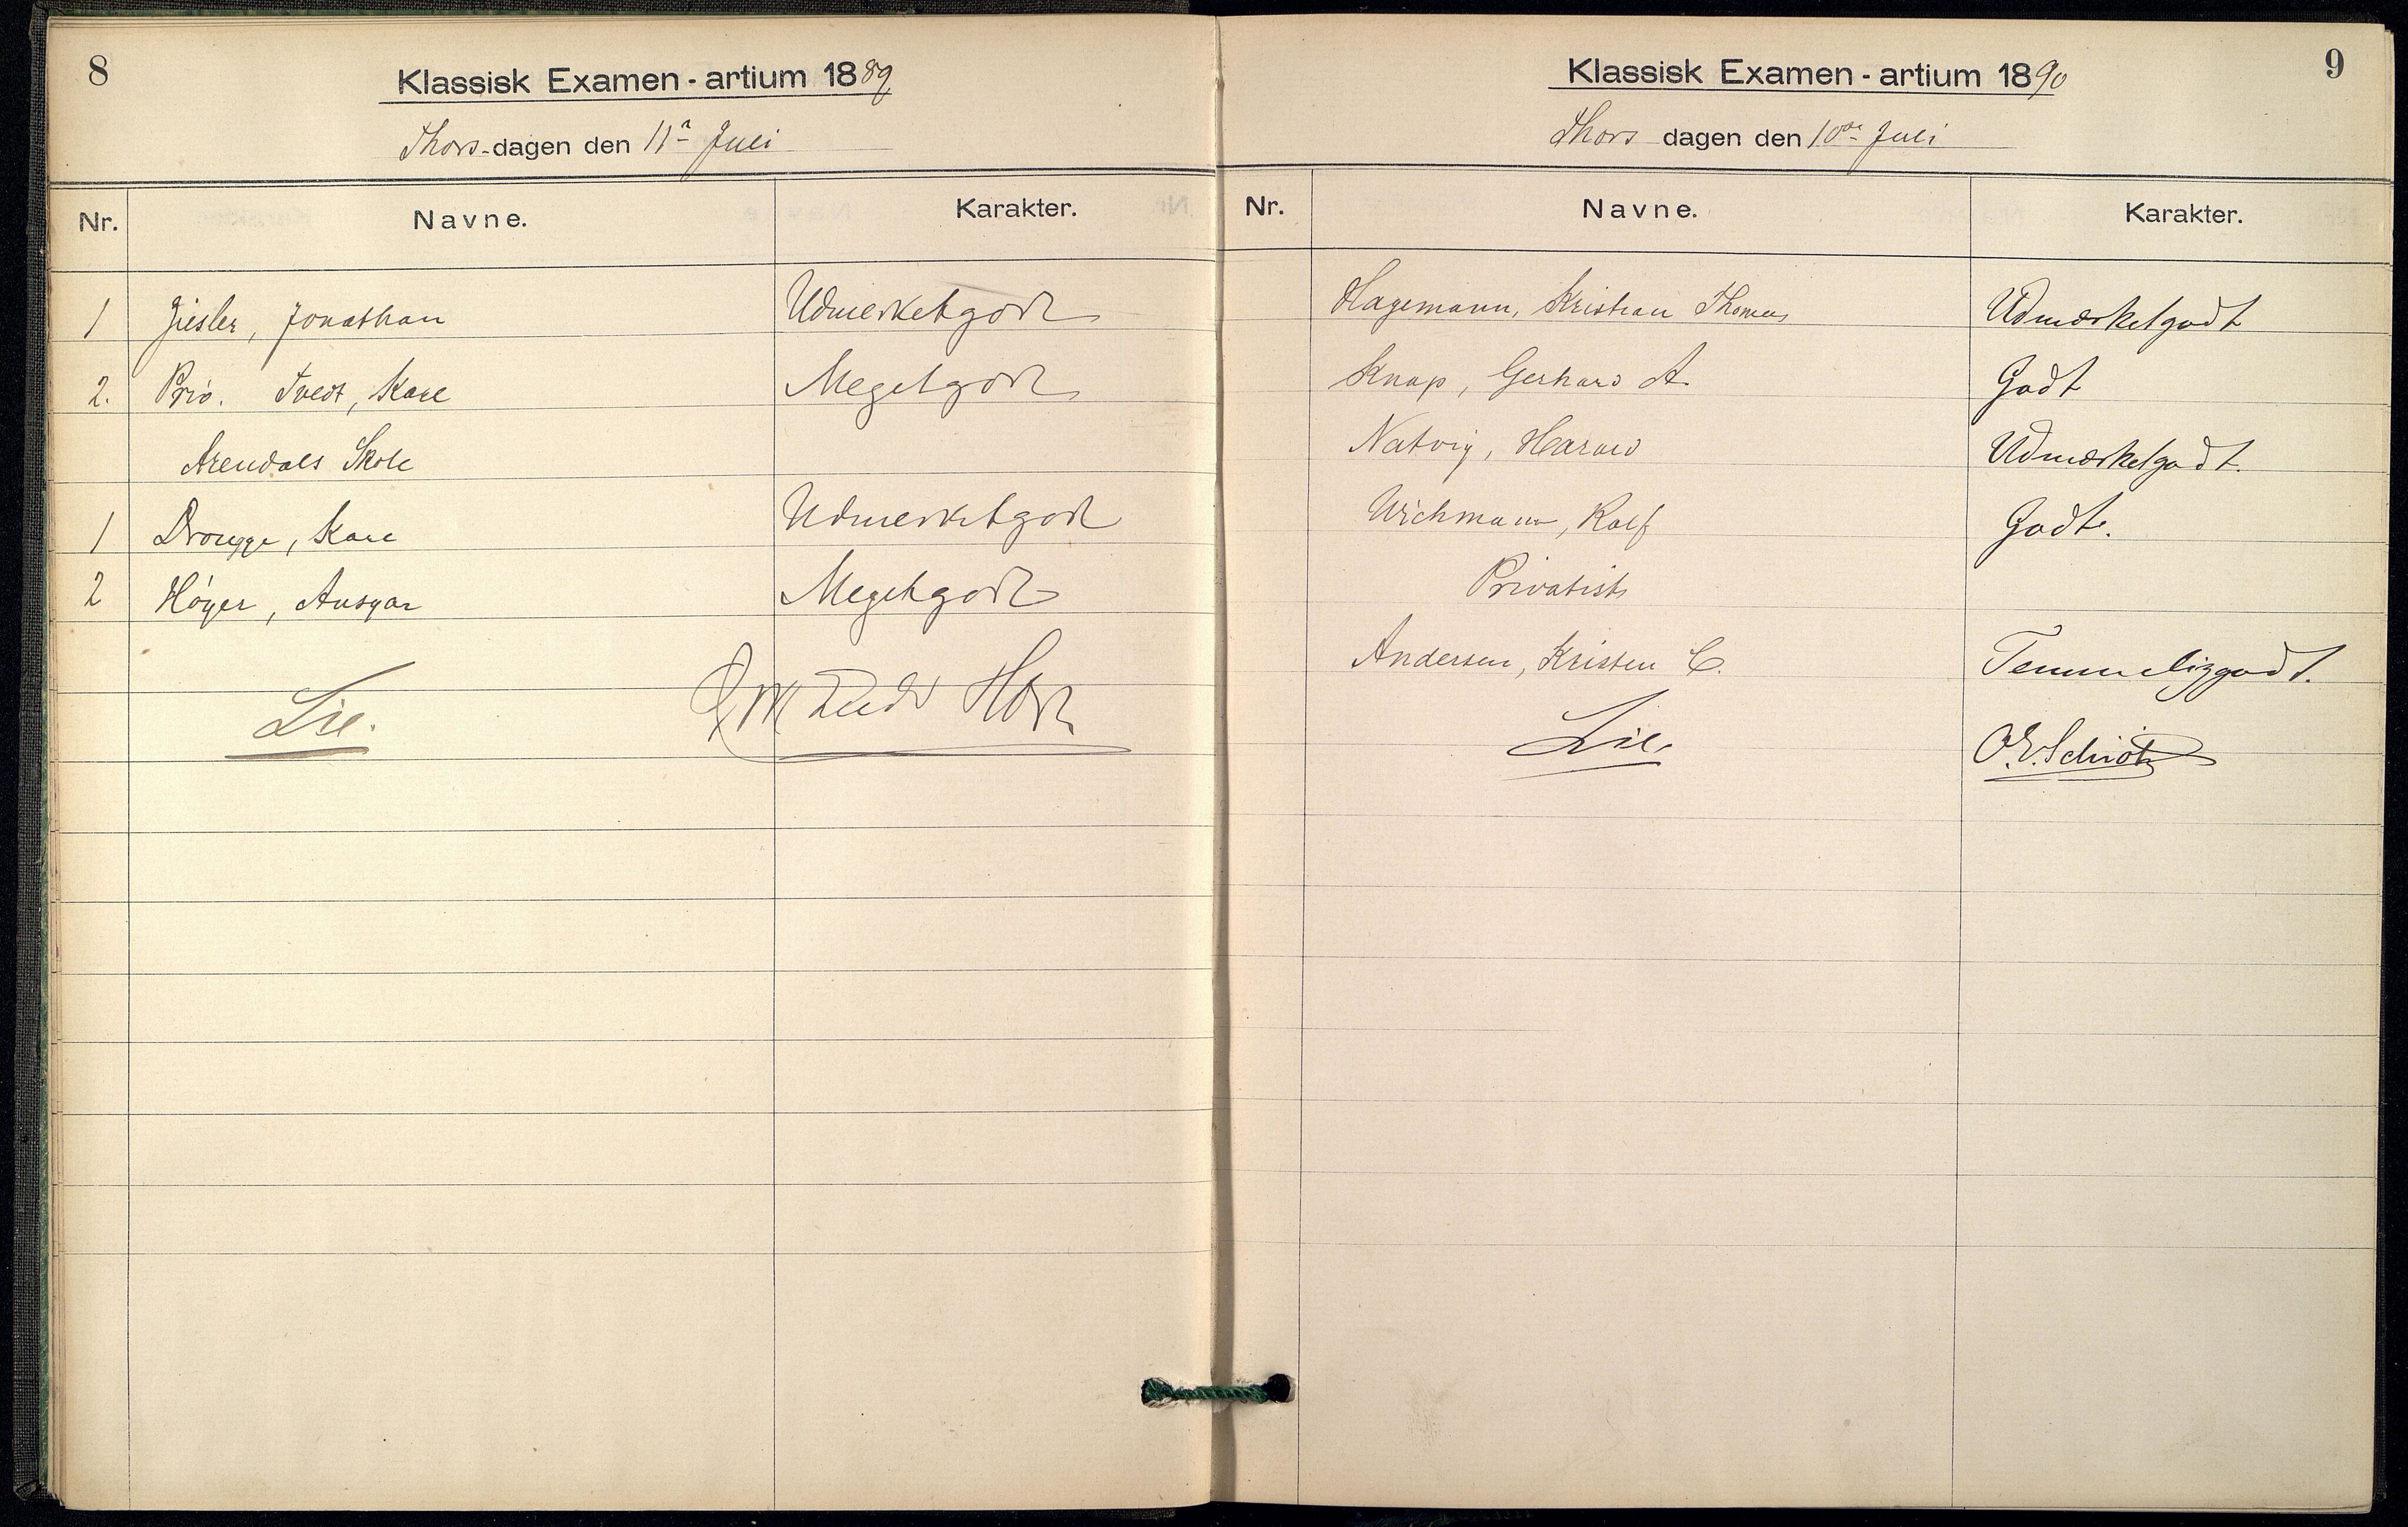 8
Klassisk Examen - artium 1889
Thors-dagen den 11te Juli
Nr. Navne. Karakter.
1 Ziesler, Jonathan Udmerketgodt
2. Priv. Tvedt, Karl Megetgodt
Arendals Skole
1 Udmerketgodt
2 Høyer, Ansgar Megetgodt
Lie.
9
Klassisk Examen - artium 1890
Thors dagen den 10de Juli
Nr. Navne. Karakter.
Hagemann, Kristian Thomas Udmærketgodt
Knap, Gerhard A. Godt
Natvig, Harald Udmærketgodt.
Wichmann, Rolf Godt.
Privatist
Andersen, Kristen C. Temmeliggodt.
Lie. O.E. Schiøtz